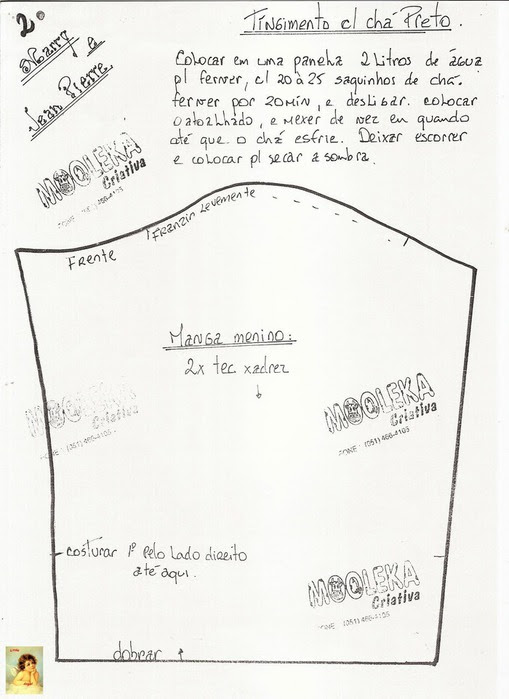 2.
Tingimento c/ chá Preto.
Nanny e
Jean Pierre
Colocar em uma panela 2 Litros de água
p/ ferver, c/ 20 à 25 saquinhos de chá.
ferver por 20min, e desligar. colocar
o atoalhado, e mexer de vez em quando
até que o chá esfrie. Deixar escorrer
e colocar p/ secar a sombra.
MOOLEKA
Criativa
Franzir Levemente
Frente
Manga menino:
2x tec. xadrez
MOOLEKA
Criativa
FONE: (051) 466-4105
MOOLEKA
Criativa
FONE: (051) 466-4105
costurar 1º pelo Lado direito
até aqui.
MOOLEKA
Criativa
FONE: (051) 466-4105
dobrar